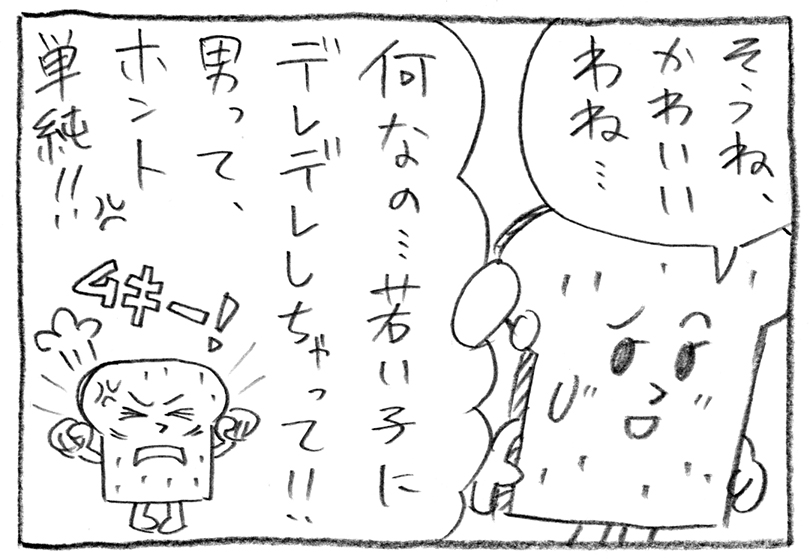 そうね、
かわいい
わね…
何なの…若い子に
デレデレしちゃって!!
男って、
ホント
単純!!
ムキー!